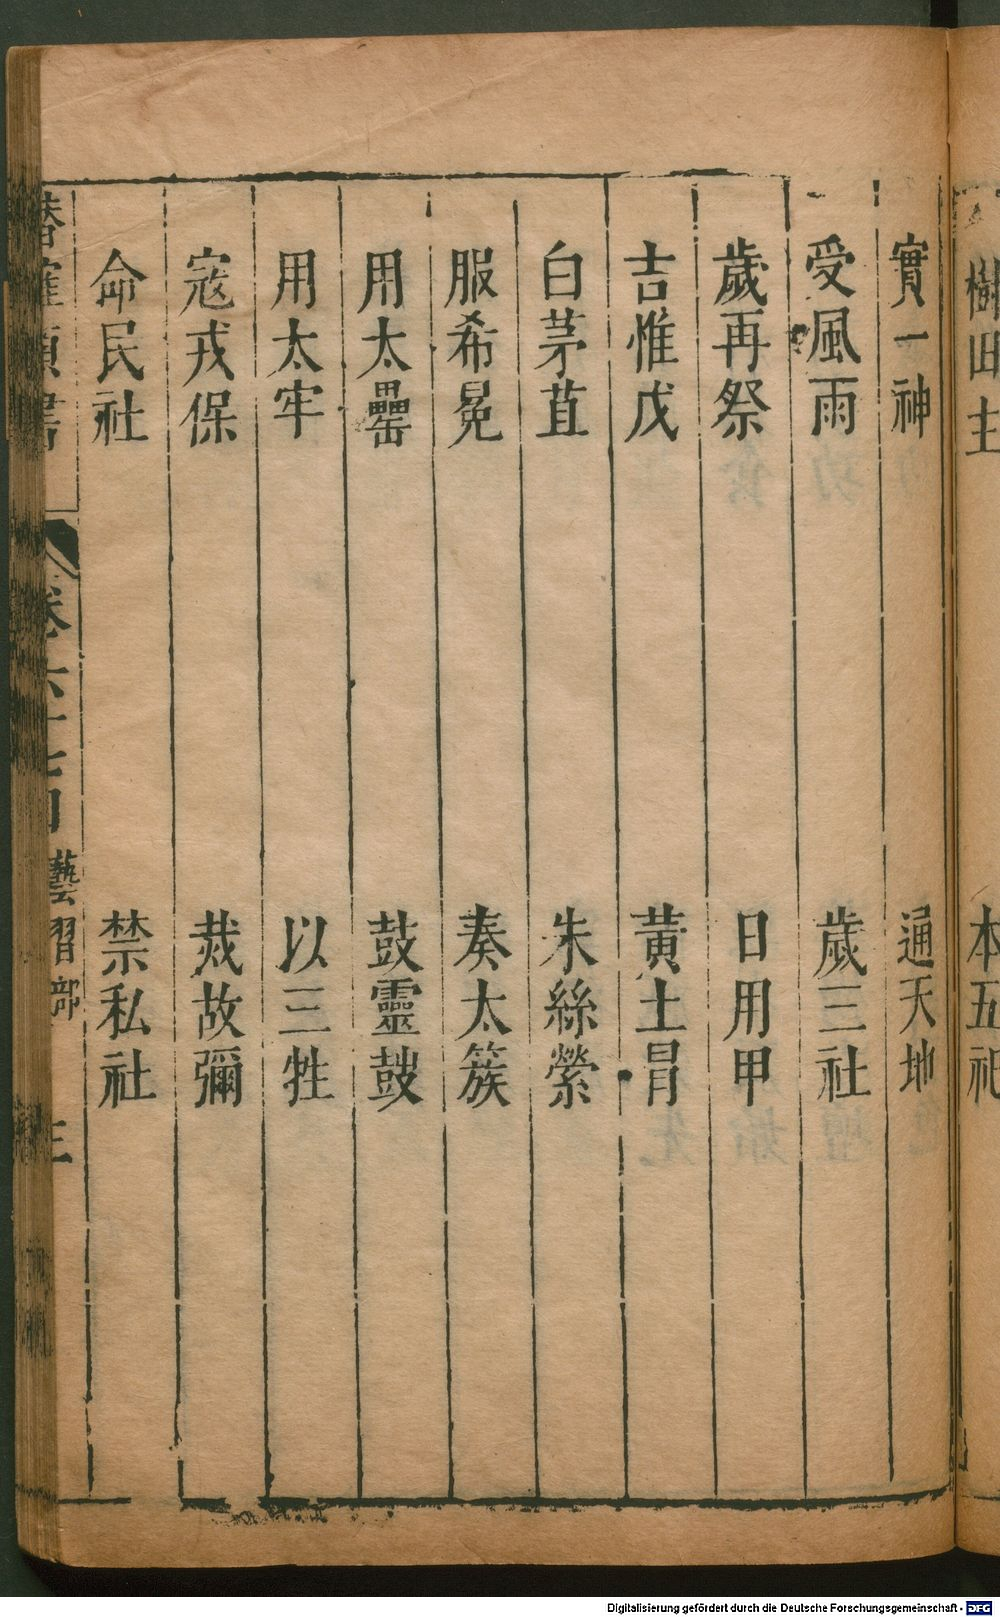 樹田主 本五祀
實一神 通天地
受風雨 歲三社
歲再祭 日用甲
吉惟戊 黃土冒
白茅苴 朱絲縈
服希冕 奏太簇
用太罍 鼓靈鼓
用太牢 以三牲
寇戎保 烖故彌
命民社 禁私社
卷六十七 藝習部 三
Digitalisierung gefördert durch die Deutsche Forschungsgemeinschaft - DFG